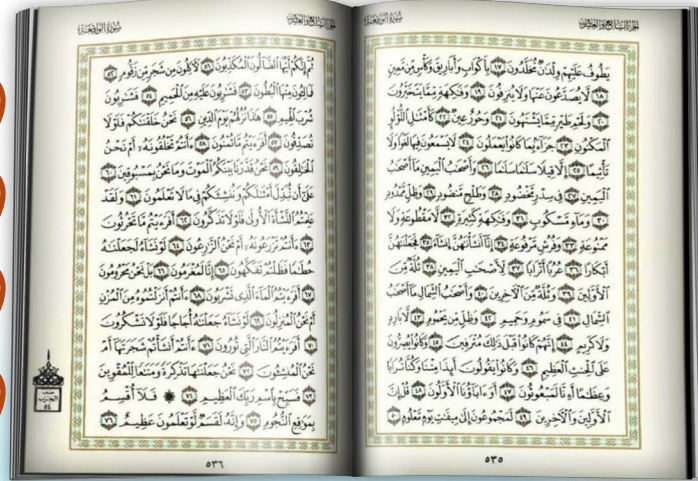 الجزء السابع والعشرون سورة الواقعة
يَطُوفُ عَلَيْهِمْ وِلْدَٰنٌ مُّخَلَّدُونَ ١٧ بِأَكْوَابٍ وَأَبَارِيقَ وَكَأْسٍ مِّن مَّعِينٍ
١٨ لَّا يُصَدَّعُونَ عَنْهَا وَلَا يُنزِفُونَ ١٩ وَفَٰكِهَةٍ مِّمَّا يَتَخَيَّرُونَ
٢٠ وَلَحْمِ طَيْرٍ مِّمَّا يَشْتَهُونَ ٢١ وَحُورٌ عِينٌ ٢٢ كَأَمْثَٰلِ ٱللُّؤْلُؤِ
ٱلْمَكْنُونِ ٢٣ جَزَآءًۢ بِمَا كَانُوا۟ يَعْمَلُونَ ٢٤ لَا يَسْمَعُونَ فِيهَا لَغْوًا وَلَا
تَأْثِيمًا ٢٥ إِلَّا قِيلًا سَلَٰمًا سَلَٰمًا ٢٦ وَأَصْحَٰبُ ٱلْيَمِينِ مَآ أَصْحَٰبُ
ٱلْيَمِينِ ٢٧ فِى سِدْرٍ مَّخْضُودٍ ٢٨ وَطَلْحٍ مَّنضُودٍ ٢٩ وَظِلٍّ مَّمْدُودٍ
٣٠ وَمَآءٍ مَّسْكُوبٍ ٣١ وَفَٰكِهَةٍ كَثِيرَةٍ ٣٢ لَّا مَقْطُوعَةٍ وَلَا
مَمْنُوعَةٍ ٣٣ وَفُرُشٍ مَّرْفُوعَةٍ ٣٤ إِنَّآ أَنشَأْنَٰهُنَّ إِنشَآءً ٣٥ فَجَعَلْنَٰهُنَّ
أَبْكَارًا ٣٦ عُرُبًا أَتْرَابًا ٣٧ لِّأَصْحَٰبِ ٱلْيَمِينِ ٣٨ ثُلَّةٌ مِّنَ
ٱلْأَوَّلِينَ ٣٩ وَثُلَّةٌ مِّنَ ٱلْءَاخِرِينَ ٤٠ وَأَصْحَٰبُ ٱلشِّمَالِ مَآ أَصْحَٰبُ
ٱلشِّمَالِ ٤١ فِى سَمُومٍ وَحَمِيمٍ ٤٢ وَظِلٍّ مِّن يَحْمُومٍ ٤٣ لَّا بَارِدٍ
وَلَا كَرِيمٍ ٤٤ إِنَّهُمْ كَانُوا۟ قَبْلَ ذَٰلِكَ مُتْرَفِينَ ٤٥ وَكَانُوا۟ يُصِرُّونَ
عَلَى ٱلْحِنثِ ٱلْعَظِيمِ ٤٦ وَكَانُوا۟ يَقُولُونَ أَئِذَا مِتْنَا وَكُنَّا تُرَابًا
وَعِظَٰمًا أَءِنَّا لَمَبْعُوثُونَ ٤٧ أَوَءَابَآؤُنَا ٱلْأَوَّلُونَ ٤٨ قُلْ إِنَّ
ٱلْأَوَّلِينَ وَٱلْءَاخِرِينَ ٤٩ لَمَجْمُوعُونَ إِلَىٰ مِيقَٰتِ يَوْمٍ مَّعْلُومٍ ٥٠
٥٣٥
الجزء السابع والعشرون سورة الواقعة
ثُمَّ إِنَّكُمْ أَيُّهَا ٱلضَّآلُّونَ ٱلْمُكَذِّبُونَ ٥١ لَءَاكِلُونَ مِن شَجَرٍ مِّن زَقُّومٍ ٥٢
فَمَالِـُٔونَ مِنْهَا ٱلْبُطُونَ ٥٣ فَشَٰرِبُونَ عَلَيْهِ مِنَ ٱلْحَمِيمِ ٥٤ فَشَٰرِبُونَ
شُرْبَ ٱلْهِيمِ ٥٥ هَٰذَا نُزُلُهُمْ يَوْمَ ٱلدِّينِ ٥٦ نَحْنُ خَلَقْنَٰكُمْ فَلَوْلَا
تُصَدِّقُونَ ٥٧ أَفَرَءَيْتُم مَّا تُمْنُونَ ٥٨ ءَأَنتُمْ تَخْلُقُونَهُۥٓ أَمْ نَحْنُ
ٱلْخَٰلِقُونَ ٥٩ نَحْنُ قَدَّرْنَا بَيْنَكُمُ ٱلْمَوْتَ وَمَا نَحْنُ بِمَسْبُوقِينَ ٦٠
عَلَىٰٓ أَن نُّبَدِّلَ أَمْثَٰلَكُمْ وَنُنشِئَكُمْ فِى مَا لَا تَعْلَمُونَ ٦١ وَلَقَدْ
عَلِمْتُمُ ٱلنَّشْأَةَ ٱلْأُولَىٰ فَلَوْلَا تَذَكَّرُونَ ٦٢ أَفَرَءَيْتُم مَّا تَحْرُثُونَ
٦٣ ءَأَنتُمْ تَزْرَعُونَهُۥٓ أَمْ نَحْنُ ٱلزَّٰرِعُونَ ٦٤ لَوْ نَشَآءُ لَجَعَلْنَٰهُ
حُطَٰمًا فَظَلْتُمْ تَفَكَّهُونَ ٦٥ إِنَّا لَمُغْرَمُونَ ٦٦ بَلْ نَحْنُ مَحْرُومُونَ
٦٧ أَفَرَءَيْتُمُ ٱلْمَآءَ ٱلَّذِى تَشْرَبُونَ ٦٨ ءَأَنتُمْ أَنزَلْتُمُوهُ مِنَ ٱلْمُزْنِ
أَمْ نَحْنُ ٱلْمُنزِلُونَ ٦٩ لَوْ نَشَآءُ جَعَلْنَٰهُ أُجَاجًا فَلَوْلَا تَشْكُرُونَ
٧٠ أَفَرَءَيْتُمُ ٱلنَّارَ ٱلَّتِى تُورُونَ ٧١ ءَأَنتُمْ أَنشَأْتُمْ شَجَرَتَهَآ أَمْ
نَحْنُ ٱلْمُنشِـُٔونَ ٧٢ نَحْنُ جَعَلْنَٰهَا تَذْكِرَةً وَمَتَٰعًا لِّلْمُقْوِينَ
٧٣ فَسَبِّحْ بِٱسْمِ رَبِّكَ ٱلْعَظِيمِ ٧٤ ۞ فَلَآ أُقْسِمُ
بِمَوَٰقِعِ ٱلنُّجُومِ ٧٥ وَإِنَّهُۥ لَقَسَمٌ لَّوْ تَعْلَمُونَ عَظِيمٌ ٧٦
الحزب
٥٤
٥٣٦